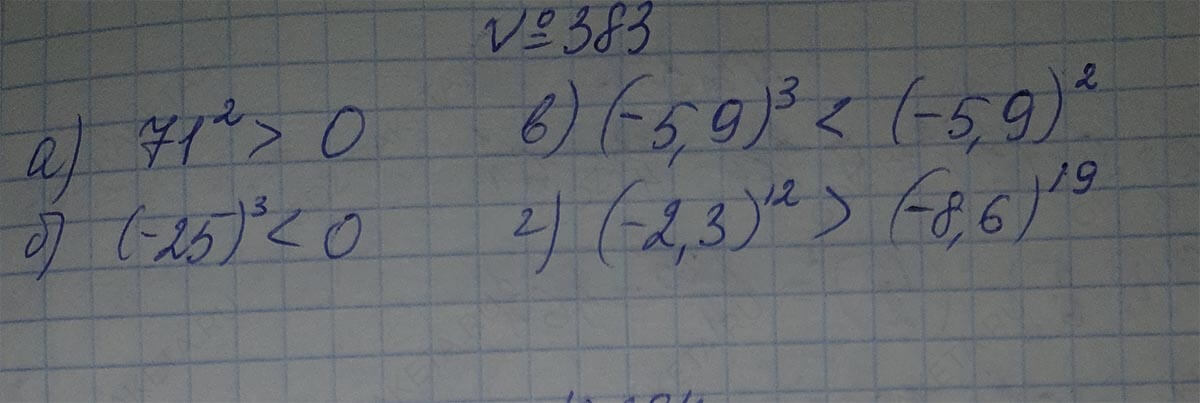 № 383
а) 71² > 0 в) (-5,9)³ < (-5,9)²
б) (-25)³ < 0 г) (-2,3)¹² > (-8,6)¹⁹